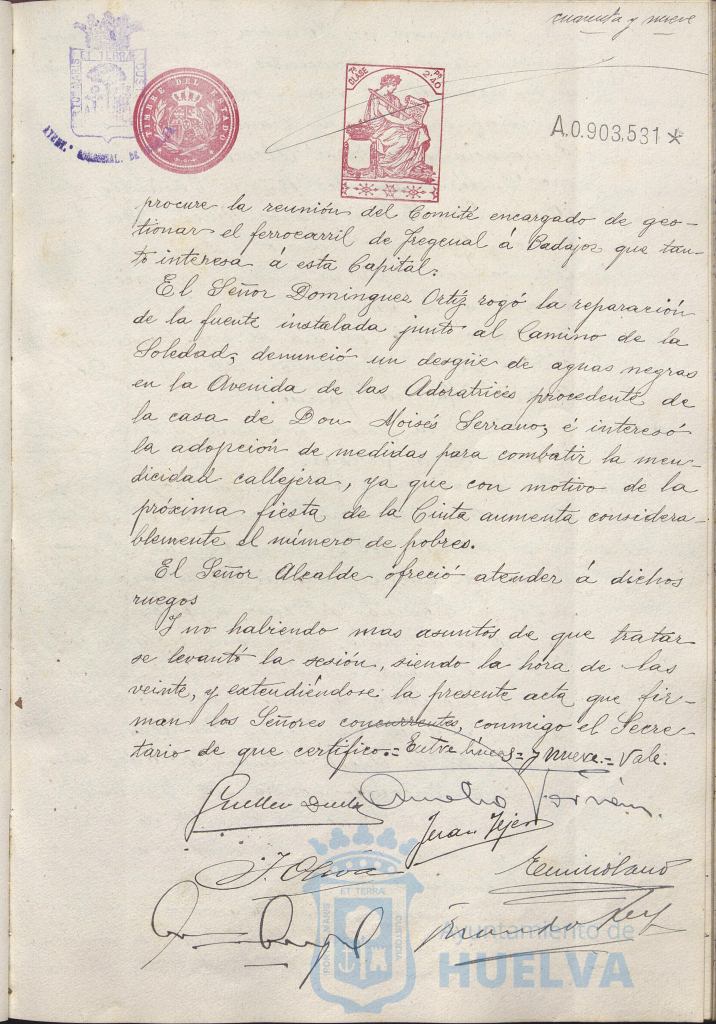 cuarenta y nueve
ET TERRA
TIMBRE DEL ESTADO
7ª CLASE
2'40
A.0.903,531 *
procure la reunión del Comité encargado de ges-
tionar el ferrocarril de Fregenal á Badajoz que tan-
to interesa á esta Capital.
El Señor Dominguez Ortíz rogó la reparación
de la fuente instalada junto al Camino de la
Soledad, denunció un desgüe de aguas negras
en la Avenida de las Adoratrices procedente de
la casa de Don Moisés Serrano, é interesó
la adopción de medidas para combatir la men-
dicidad callejera, ya que con motivo de la
próxima fiesta de la Cinta aumenta considera-
blemente el número de pobres.
El Señor Alcalde ofreció atender á dichos
ruegos
Y no habiendo mas asuntos de que tratar
se levantó la sesión, siendo la hora de las
veinte, y extendiéndose la presente acta que fir-
man los Señores concurrentes, conmigo el Secre-
tario de que certifico.= Entre líneas= y nueve.= Vale.
Juan Tejer
ET TERRA
PORTUS MARIS
CUSTODIA
Ayuntamiento de
HUELVA